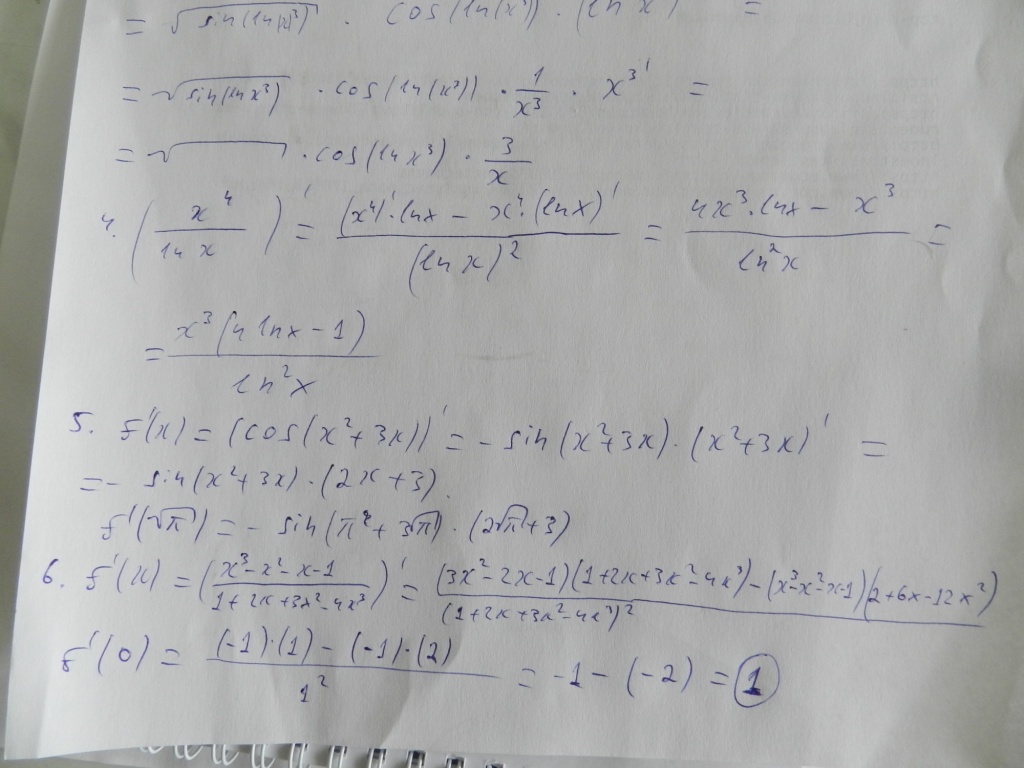 = √sin(ln(x)³) · cos(ln(x³)) · (ln x) =
= √sin(ln x³) · cos(ln(x³)) · 1/x³ · x³' =
= √ · cos(ln x³) · 3/x
4. (x⁴/ln x)' = ((x⁴)'·ln x − x⁴·(ln x)')/(ln x)² = (4x³·ln x − x³)/ln²x =
= x³(4 ln x − 1)/ln²x
5. f'(x) = (cos(x²+3x))' = −sin(x²+3x)·(x²+3x)' =
= − sin(x²+3x)·(2x+3).
f'(√π) = − sin(π²+3√π)·(2√π+3)
6. f'(x) = ((x³−x²−x−1)/(1+2x+3x²−4x³))' = ((3x²−2x−1)(1+2x+3x²−4x³)−(x³−x²−x−1)(2+6x−12x²))/(1+2x+3x²−4x³)²
f'(0) = ((−1)·(1) − (−1)·(2))/1² = −1 − (−2) = 1